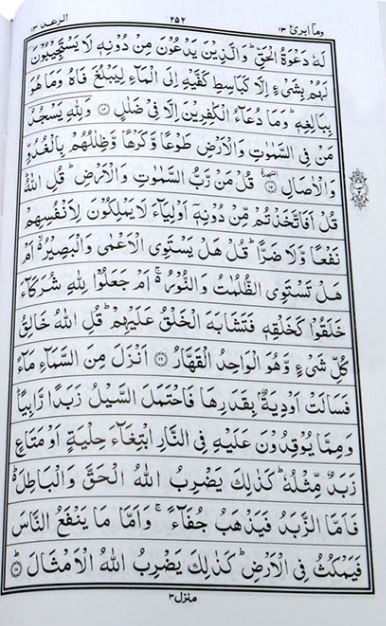 وما ابرئ ١٣ ٢٥٢ الرعد ١٣
لَهٗ دَعْوَةُ الْحَقِّ ؕ وَالَّذِيْنَ يَدْعُوْنَ مِنْ دُوْنِهٖ لَا يَسْتَجِيْبُوْنَ
لَهُمْ بِشَيْءٍ اِلَّا كَبَاسِطِ كَفَّيْهِ اِلَى الْمَآءِ لِيَبْلُغَ فَاهُ وَمَا هُوَ
بِبَالِغِهٖ ؕ وَمَا دُعَآءُ الْكٰفِرِيْنَ اِلَّا فِيْ ضَلٰلٍ ۝ وَلِلّٰهِ يَسْجُدُ
مَنْ فِي السَّمٰوٰتِ وَالْاَرْضِ طَوْعًا وَّكَرْهًا وَّظِلٰلُهُمْ بِالْغُدُوِّ
وَالْاٰصَالِ ۝١٥ قُلْ مَنْ رَّبُّ السَّمٰوٰتِ وَالْاَرْضِ ؕ قُلِ اللّٰهُ ؕ
قُلْ اَفَاتَّخَذْتُمْ مِّنْ دُوْنِهٖۤ اَوْلِيَآءَ لَا يَمْلِكُوْنَ لِاَنْفُسِهِمْ
نَفْعًا وَّلَا ضَرًّا ؕ قُلْ هَلْ يَسْتَوِي الْاَعْمٰى وَالْبَصِيْرُ ۙ اَمْ
هَلْ تَسْتَوِي الظُّلُمٰتُ وَالنُّوْرُ ۚ اَمْ جَعَلُوْا لِلّٰهِ شُرَكَآءَ
خَلَقُوْا كَخَلْقِهٖ فَتَشَابَهَ الْخَلْقُ عَلَيْهِمْ ؕ قُلِ اللّٰهُ خَالِقُ
كُلِّ شَيْءٍ وَّهُوَ الْوَاحِدُ الْقَهَّارُ ۝١٦ اَنْزَلَ مِنَ السَّمَآءِ مَآءً
فَسَالَتْ اَوْدِيَةٌۢ بِقَدَرِهَا فَاحْتَمَلَ السَّيْلُ زَبَدًا رَّابِيًا ؕ
وَمِمَّا يُوْقِدُوْنَ عَلَيْهِ فِي النَّارِ ابْتِغَآءَ حِلْيَةٍ اَوْ مَتَاعٍ
زَبَدٌ مِّثْلُهٗ ؕ كَذٰلِكَ يَضْرِبُ اللّٰهُ الْحَقَّ وَالْبَاطِلَ ؕ۬
فَاَمَّا الزَّبَدُ فَيَذْهَبُ جُفَآءً ۚ وَاَمَّا مَا يَنْفَعُ النَّاسَ
فَيَمْكُثُ فِي الْاَرْضِ ؕ كَذٰلِكَ يَضْرِبُ اللّٰهُ الْاَمْثَالَ ؕ ۝١٧
منزل ٣